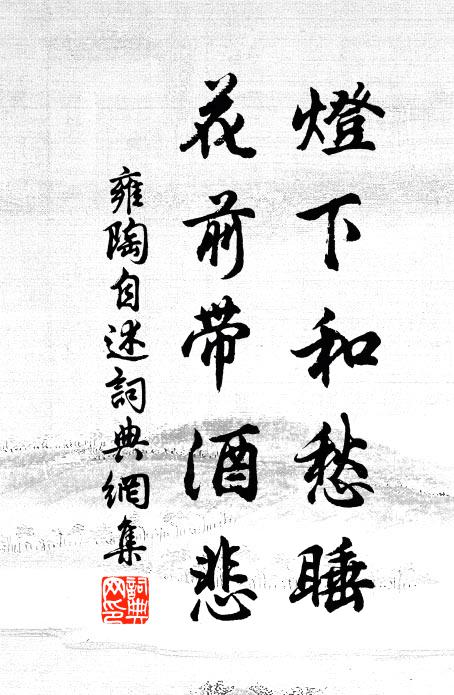 燈下和愁睡
花前帶酒悲
雍陶自述詞典網集
詞典网印